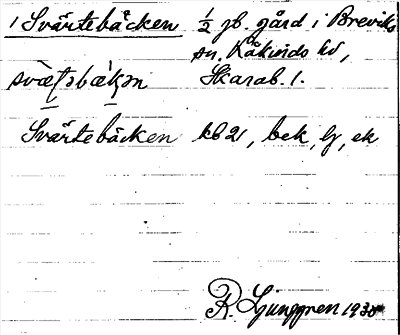 1 Svärtebäcken 1/2 jb. gård i Breviks
sn. Kåkinds hd,
Skarab. l.
Svärtebäcken kb 21, bek, lj, ek
R. Ljunggren 1935